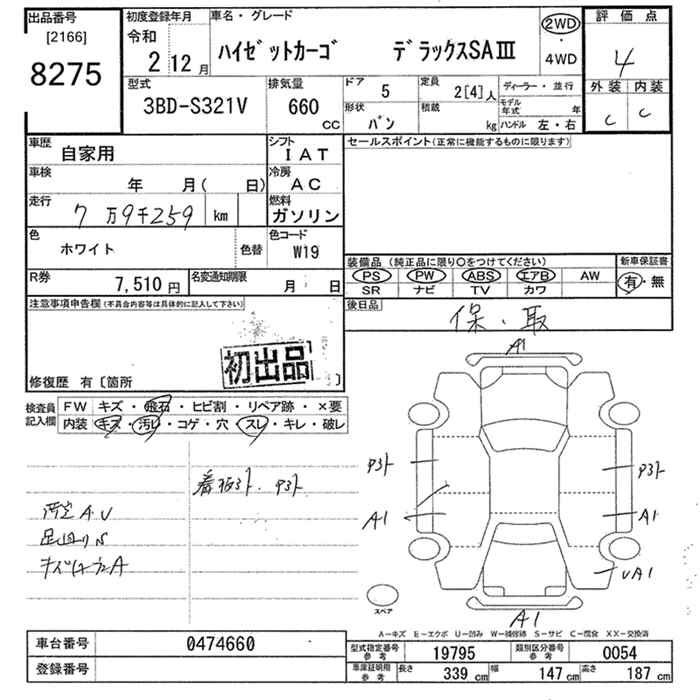 出品番号
[2166]
8275
初度登録年月
令和
2 12 月
車名・グレード
ハイゼットカーゴ デラックスSAⅢ
2WD
・
4WD
評価点
4
外装 内装
C C
型式
3BD-S321V
排気量
660 CC
ドア 5
定員 2[4]人
形状 バン
積載 kg
ディーラー・並行
モデル年式 年
ハンドル 左・右
車歴 自家用
シフト IAT
車検 年 月( 日)
冷房 AC
走行 7万9千259 km
燃料 ガソリン
色 ホワイト
色替
色コード W19
R券 7,510 円
名変通知期限 月 日
セールスポイント(正常に機能するものに限ります)
装備品(純正品に限り〇をつけてください)
新車保証書
PS PW ABS エアB AW
有・無
SR ナビ TV カワ
後日品
保・取
注意事項申告欄(不具合内容等は具体的に記入して下さい)
初出品
修復歴 有〔箇所
検査員記入欄
FW キズ・飛石・ヒビ割・リペア跡・×要
内装 キズ・汚レ・コゲ・穴・スレ・キレ・破レ
A1
P3ト
P3ト
A1
A1
UA1
A1
スペア
A-キズ E-エクボ U-凹み W-補修跡 S-サビ C-腐食 XX-交換済
車台番号 0474660
登録番号
型式指定番号参考 19795
類別区分番号参考 0054
車庫証明用参考 長さ 339 cm 幅 147 cm 高さ 187 cm